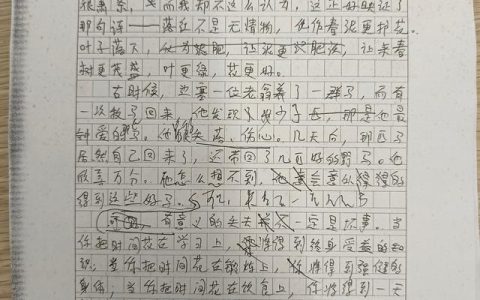 很萧条，而我却不这么认为，这正好映证了
那句诗——落红不是无情物，化作春泥更护花。
叶子落下，化为泥肥，让泥更肥沃，让来春
树更茂盛，叶更绿，花更好。
古时候，边塞一位老翁养了一群马，而有
一次牧了回来，他发现少了一匹，那是他最
钟爱的马。他很失落、伤心。几天后，那匹马
居然自己回来了，还带回了几百好的野马。他
欣喜万分。他怎么想不到，他会失得的
得到这么好的马，是
有意义的失去不一定是坏事。当
你把时间花在学习上，你将得到终身受益的知
识；当你把时间花在锻炼上，你将得到强健的
身体；当你把时间花在饮食上，你将得到一天